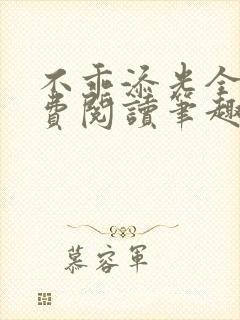 不乖添光全
费阅读笔趣
慕容军